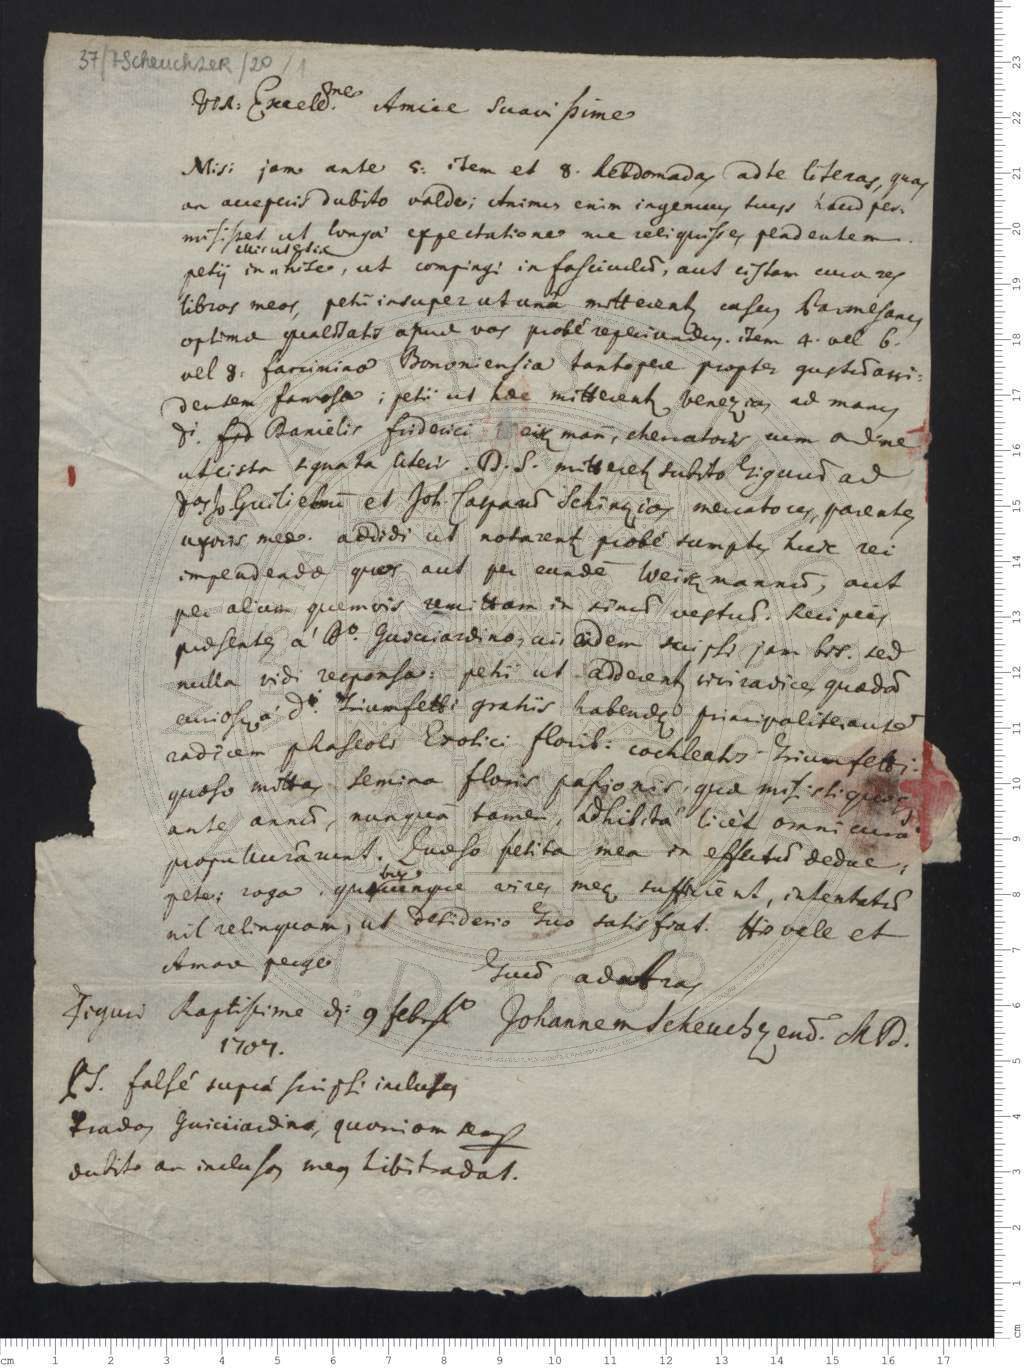 37/7 Scheuchzer /20 /1
Vir: Excell.me Amice Suavissime
Misi jam ante 5. item et 8. hebdomadas ad te literas, quas
an acceperis dubito valde; Animus enim ingenuus tuus haud per-
misisset ut longa expectatione me reliquisses pendentem.
petij in , ut compingi in fasciculũ, aut cistam cura res
libros meos, petii insuper ut unà mitterent caseũ Parmesanũ
optimae qualitatis apud vos probè reperiundum. item 4. vel 6.
vel 8. farcimina Bononiensia tantopere propter gustũ arri-
dentem famosa; petii ut haec mitterent Venezias ad manus
Di. Danielis Friderici Weizmañ, mercatoris cum ordine
ut cista signata literis. D. S. mitteret subito Tigurũ ad
Dos Jo. Guilielmũ et Joh. Casparũ Schinzios mercatores, parentes
uxoris meae. addidi ut notarent probè sumptus huic rei
impendendos quos aut per eundẽ Weizmannũ, aut
per alium quemvis remittam in sinũ vestrũ. Recipies
praesentes à Do. Guicciardino, cui itidem scripsi jam bis. sed
nulla vidi responsa: petii ut adderent viviradices quasdã
curiosas à Do. Triumfetti gratiis habendas principaliter autẽ
radicem phaseoli Exotici florib: cochleatis Triumfetti:
quaeso mittas semina floris passionis, quae misisti quoq
ante annũ, nunquã tamen, adhibitâ licèt omni curâ
propullulârunt. Quaeso petita mea in effectũ deduc;
pete; roga. quibuscunque vires meae sufficient, intentatũ
nil relinquam, ut desiderio Tuo satisfiat. His vale et
Amare perge
Tuũ ad aras
Tiguri Raptissime d: 9 feb. Johannem Scheuchzerũ. MD.
1707.
PS. falsè suprà scripsi inclusas
tradas Guicciardino, quoniam
dubito an inclusas meas tibi tradat.